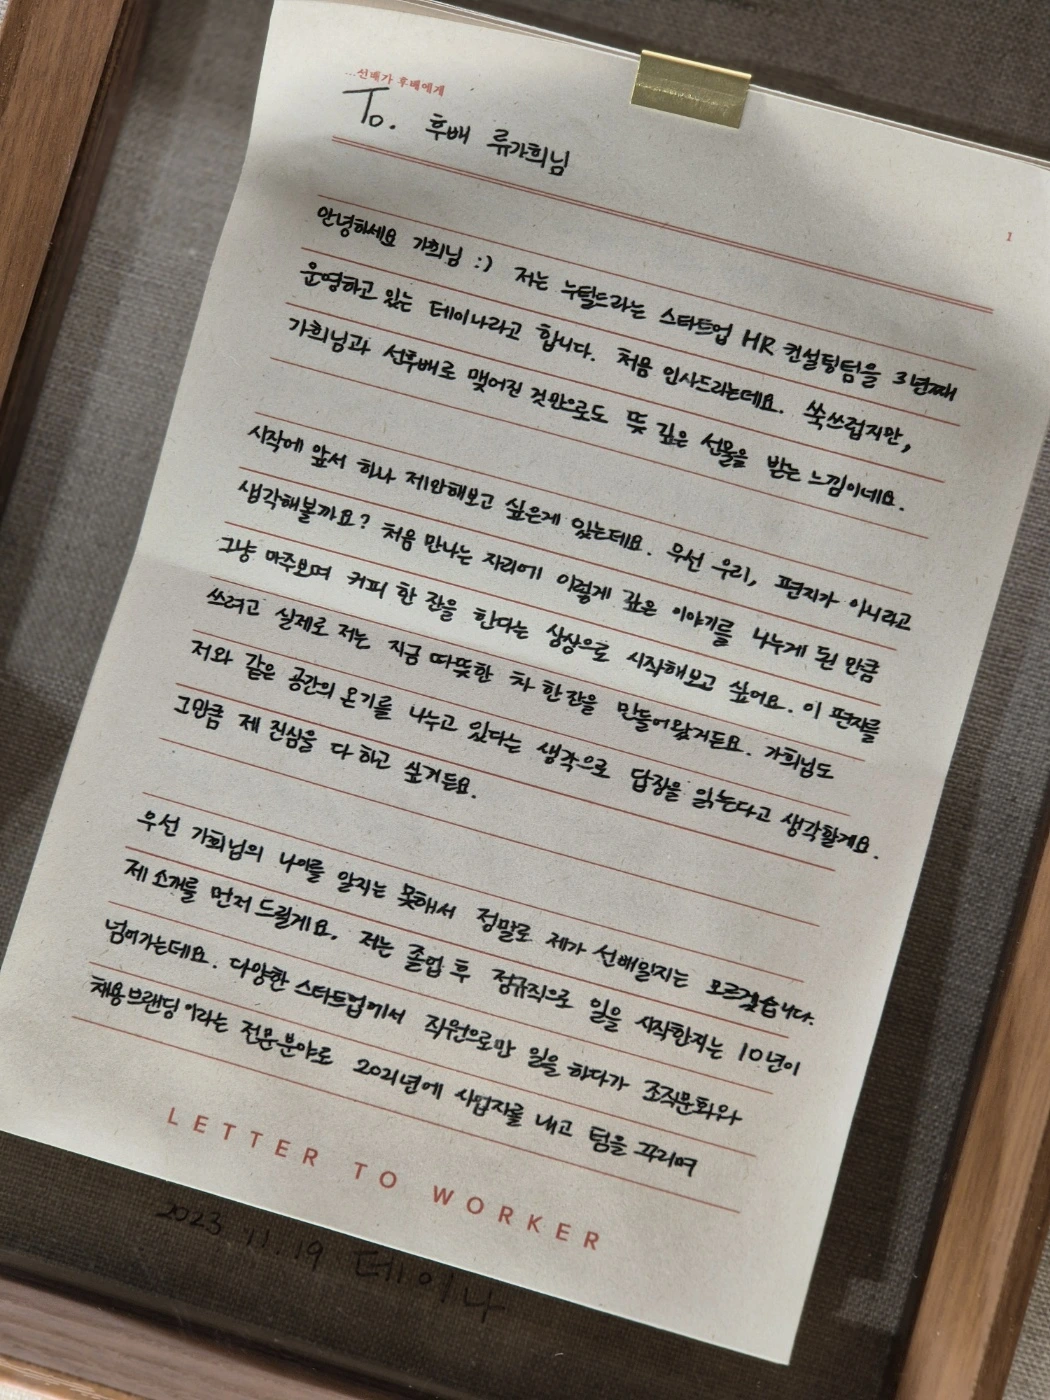 ...선배가 후배에게
To. 후배 류가희님
1
안녕하세요 가희님 :) 저는 누틸드라는 스타트업 HR 컨설팅팀을 3년째
운영하고 있는 테이나라고 합니다. 처음 인사드리는데요. 쑥쓰럽지만,
가희님과 선후배로 맺어진 것만으로도 뜻 깊은 선물을 받는 느낌이네요.
시작에 앞서 하나 제안해보고 싶은게 있는데요. 우선 우리, 편지가 아니라고
생각해볼까요? 처음 만나는 자리에 이렇게 깊은 이야기를 나누게 된 만큼
그냥 마주보며 커피 한 잔을 한다는 상상으로 시작해보고 싶어요. 이 편지를
쓰려고 실제로 저는 지금 따뜻한 차 한잔을 만들어왔거든요. 가희님도
저와 같은 공간의 온기를 나누고 있다는 생각으로 답장을 읽는다고 생각할게요.
그만큼 제 진심을 다 하고 싶거든요.
우선 가희님의 나이를 알지는 못해서 정말로 제가 선배일지는 모르겠습니다.
제 소개를 먼저 드릴게요. 저는 졸업 후 정규직으로 일을 시작한지는 10년이
넘어가는데요. 다양한 스타트업에서 직원으로만 일을 하다가 조직문화와
채용브랜딩이라는 전문분야로 2021년에 사업자를 내고 팀을 꾸리며
LETTER TO WORKER
2023.11.19 테이나